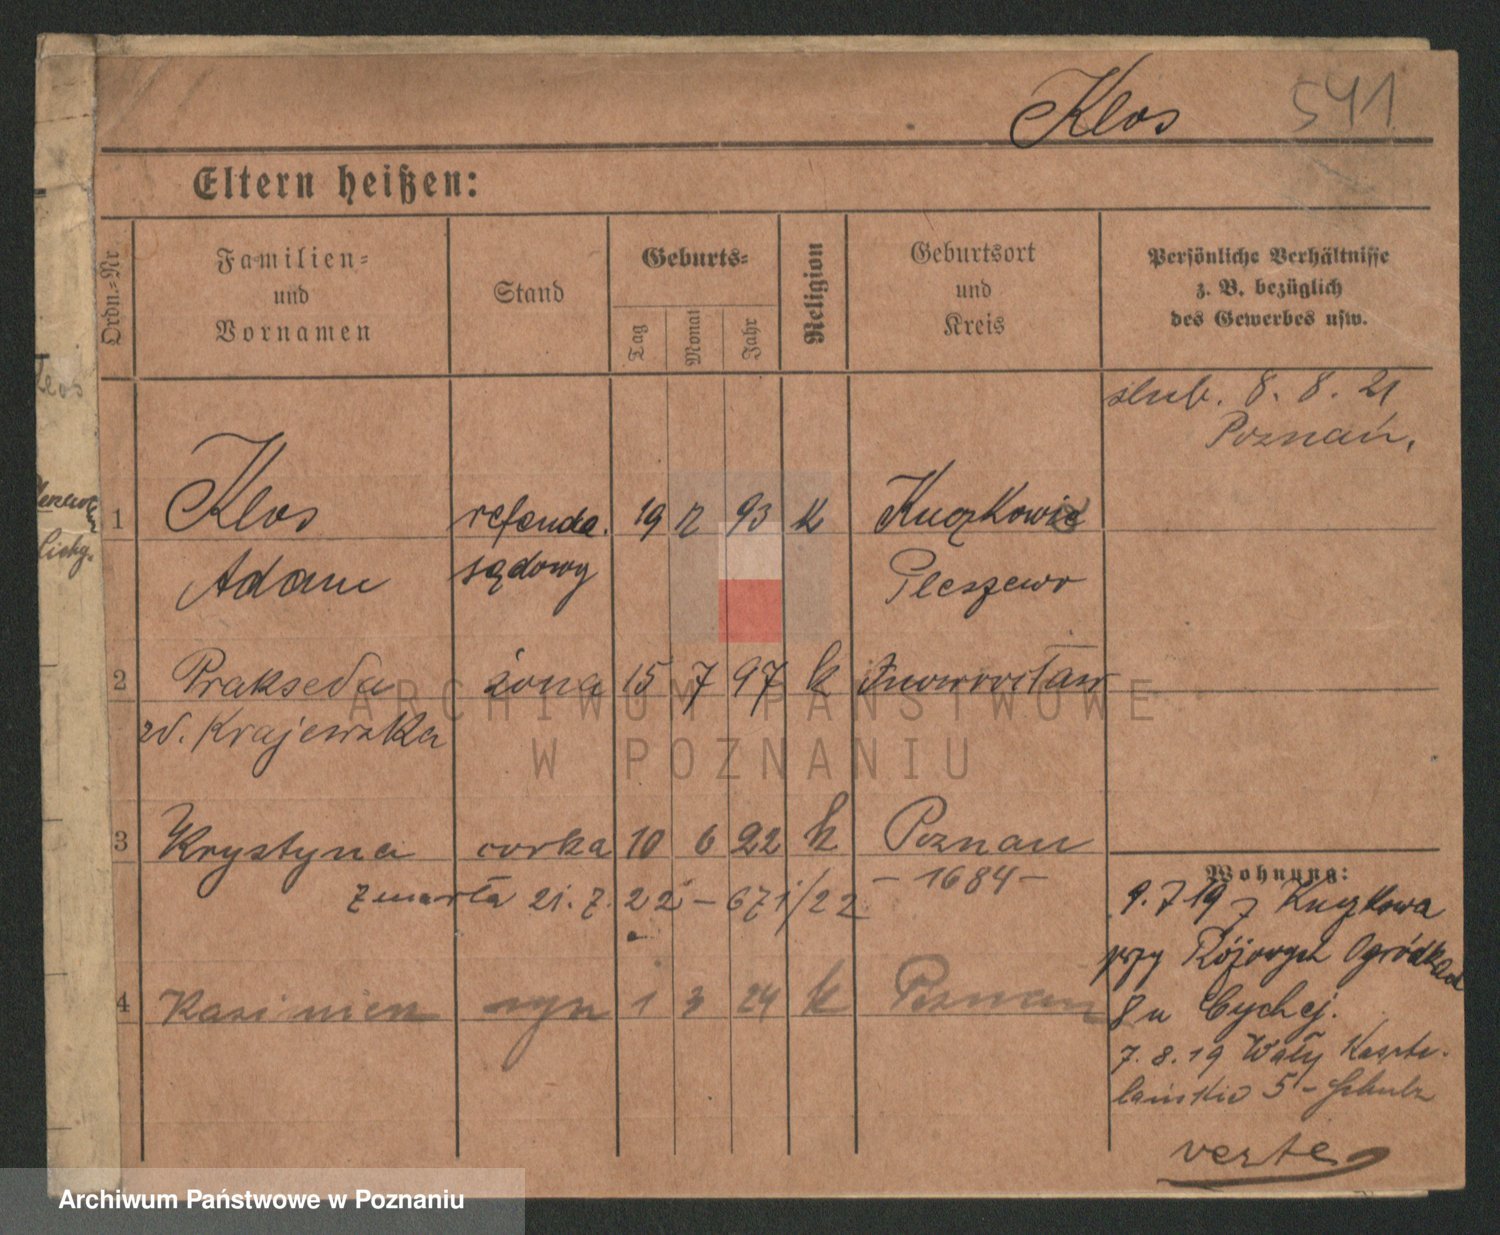 Klos 541
Eltern heißen:
Ordn.-Nr
Familien-
und
Vornamen
Stand
Geburts-
Tag
Monat
Jahr
Religion
Geburtsort
und
Kreis
Persönliche Verhältnisse
z. B. bezüglich
des Gewerbes usw.
ślub. 8. 8. 21
Poznań.
1 Klos referda. 19 12 93 k Kuczkowie
Adam sądowy Pleszewo
2 Prakseda żona 15 7 97 k Inowrocław
zd. Krajewska
3 Krystyna corka 10 6 22 k Poznan
zmarła 21. 7. 22 - 671/22 - 1684 -
4 Kazimierz syn 1 3 24 k Poznan
Wohnung:
9. 7 19 z Kuczkowa
przy Ogródkach
8 u Cychej.
7. 8. 19 Wały Kaszte-
lańskie 5 - Schulz
verte
ARCHIWUM PAŃSTWOWE
W POZNANIU
Archiwum Państwowe w Poznaniu